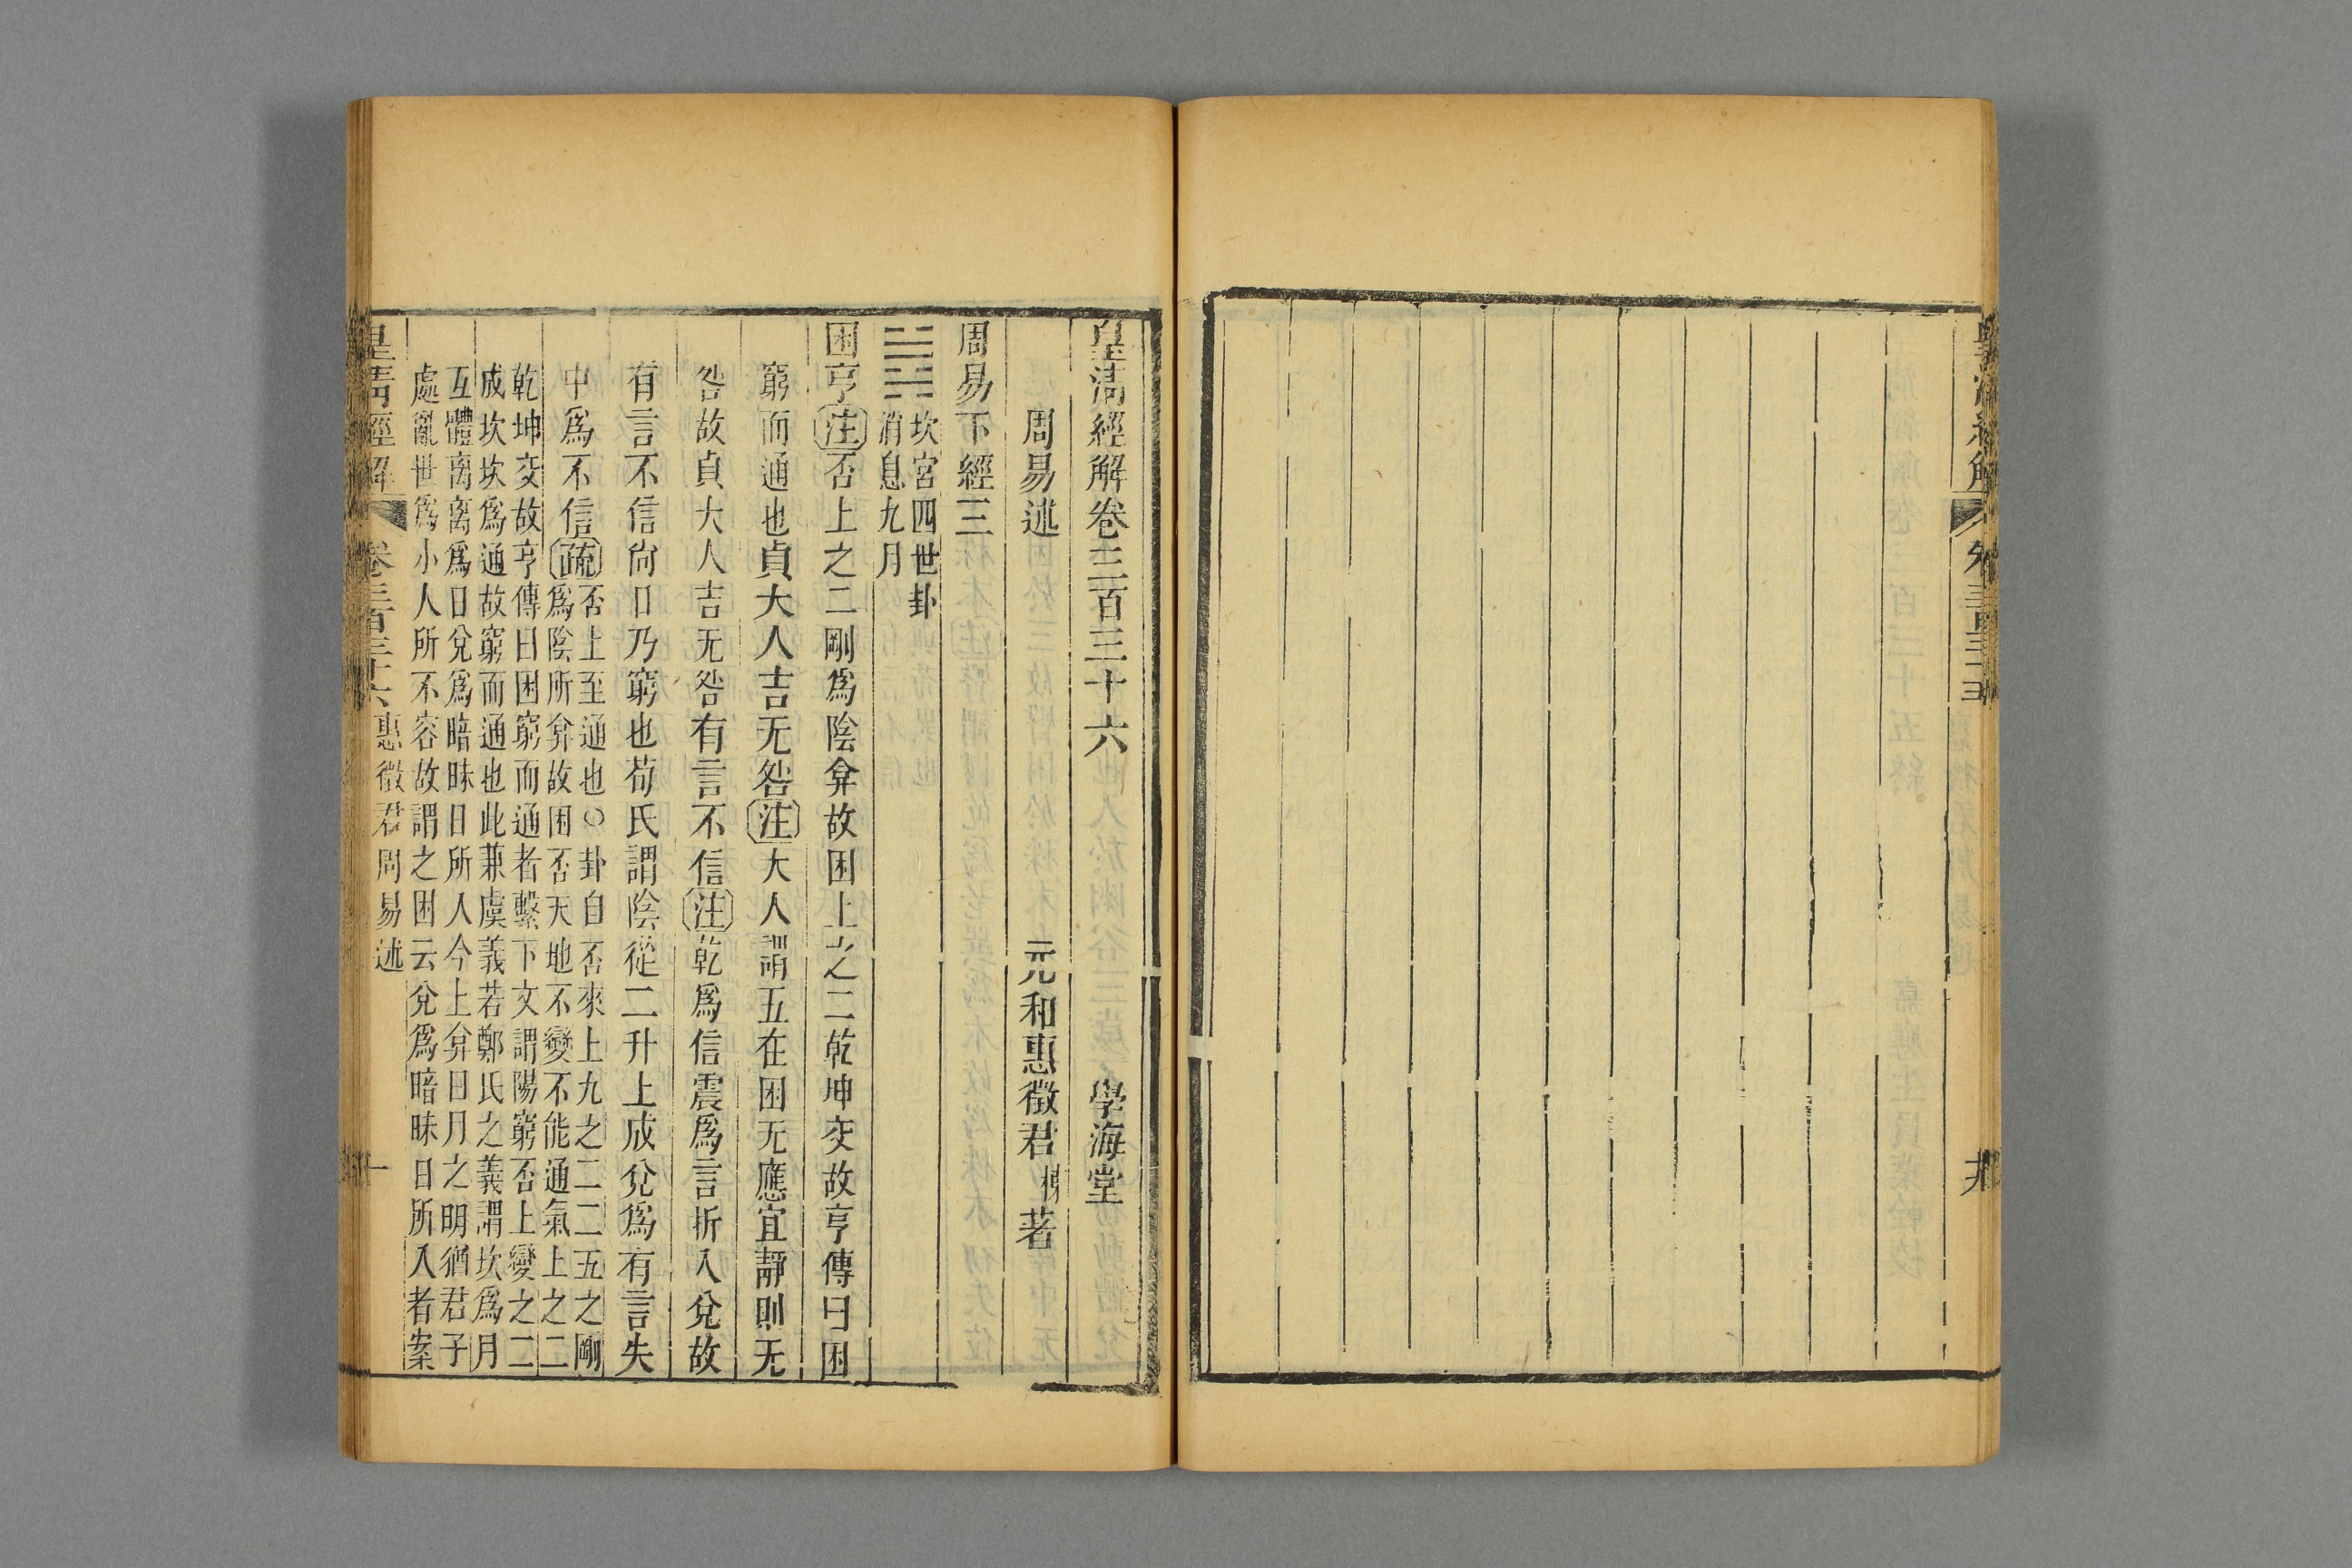 皇清經解
卷三百三十五
皇清經解卷三百三十六 學海堂
周易述 元和惠徵君棟著
周易下經三
坎宮四世卦
消息九月
困亨注否上之二剛爲陰弇故困上之二乾坤交故亨傳曰困
窮而通也貞大人吉无咎注大人謂五在困无應宜靜則无
咎故貞大人吉无咎有言不信注乾爲信震爲言折入兌故
有言不信尙口乃窮也荀氏謂陰從二升上成兌爲有言失
中爲不信疏否上至通也○卦自否來上九之二二五之剛
爲陰所弇故困否天地不變不能通氣上之二
乾坤交故亨傳曰困窮而通者繫下文謂陽窮否上變之二
成坎坎爲通故窮而通也此兼虞義若鄭氏之義謂坎爲月
互體离离爲日兌爲暗昧日所入今上弇日月之明猶君子
處亂世爲小人所不容故謂之困云兌爲暗昧日所入者案
皇清經解 卷三百三十六 惠徵君周易述 一